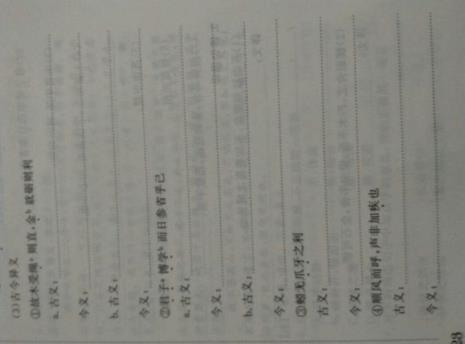 (3)古今异义
①故木受绳ᵃ则直,金ᵇ就砺则利
a.古义:
今义:
b.古义:
今义:
②君子ᵃ博学ᵇ而日参省乎己
a.古义:
今义:
b.古义:
今义:
③螾无爪牙之利
古义:
今义:
④顺风而呼,声非加疾也
古义:
今义:
28